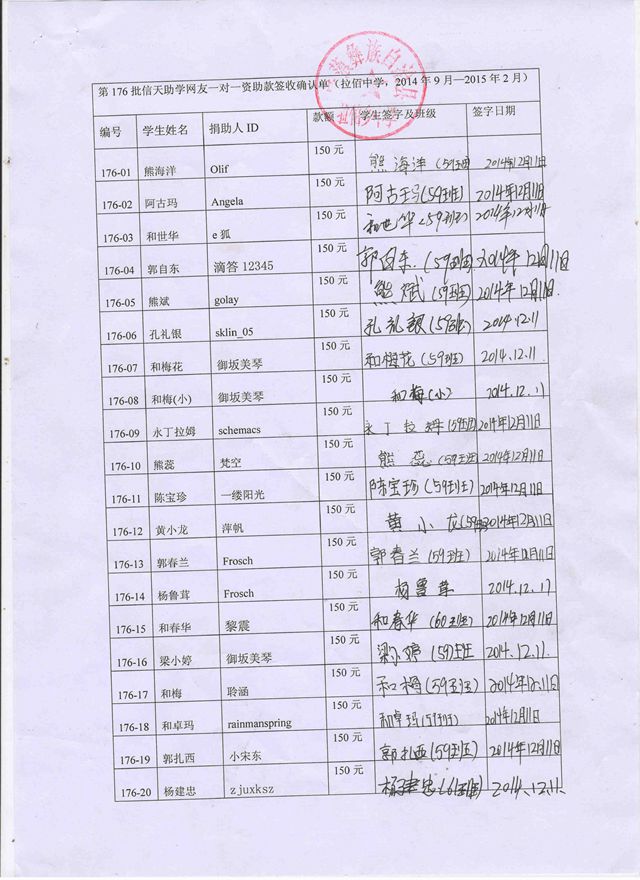 第 176 批信天助学网友一对一资助款签收确认单（拉佰中学，2014 年 9 月—2015 年 2 月）
编号 学生姓名 捐助人 ID 款额 学生签字及班级 签字日期
176-01 熊海洋 Olif 150 元 熊海洋（59班） 2014年12月11日
176-02 阿古玛 Angela 150 元 阿古玛（59班） 2014年12月11日
176-03 和世华 e 狐 150 元 和世华（59班） 2014年12月11日
176-04 郭自东 滴答 12345 150 元 郭自东（59班） 2014年12月11日
176-05 熊斌 golay 150 元 熊斌（59班） 2014年12月11日
176-06 孔礼银 sklin_05 150 元 孔礼银（59班） 2014.12.11
176-07 和梅花 御坂美琴 150 元 和梅花（59班） 2014.12.11.
176-08 和梅(小) 御坂美琴 150 元 和梅(小) 2014.12.11
176-09 永丁拉姆 schemacs 150 元 永丁拉姆（59班） 2014年12月11日
176-10 熊蕊 梵空 150 元 熊蕊（59班） 2014年12月11日
176-11 陈宝珍 一缕阳光 150 元 陈宝珍（59班） 2014年12月11日
176-12 黄小龙 萍帆 150 元 黄小龙（59班） 2014年12月11日
176-13 郭春兰 Frosch 150 元 郭春兰（59班） 2014年12月11日
176-14 杨鲁茸 Frosch 150 元 杨鲁茸 2014.12.11
176-15 和春华 黎震 150 元 和春华（60班） 2014年12月11日
176-16 梁小婷 御坂美琴 150 元 梁小婷（59）班 2014.12.11.
176-17 和梅 聆涵 150 元 和梅（59班） 2014年12.11日
176-18 和卓玛 rainmanspring 150 元 和卓玛（59班） 2014年12月11日
176-19 郭扎西 小宋东 150 元 郭扎西（59班） 2014年12月11日
176-20 杨建忠 zjuxksz 150 元 杨建忠（61班） 2014.12.11.